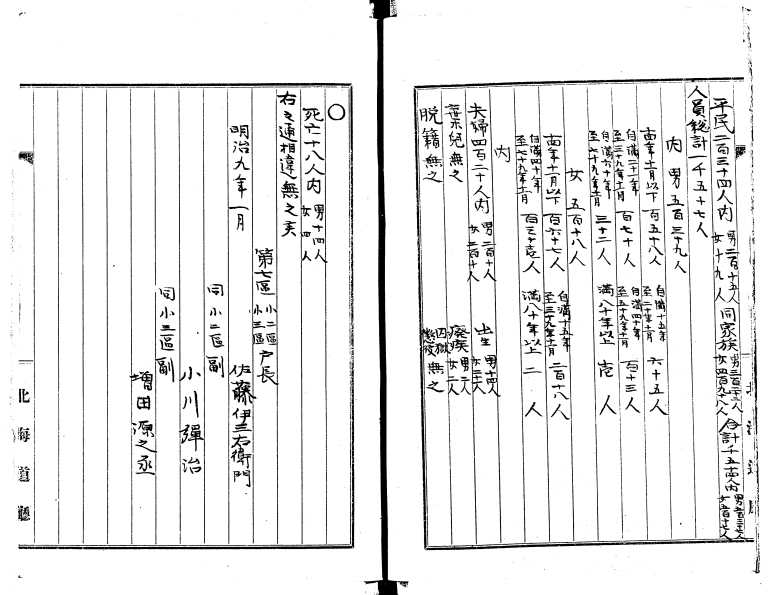 平民二百三十四人内 男二百十五人 女十九人 同家族 男三百二十二人 女四百九十八人 合計千五十六人内
人員総計一千五十七人
内 男 五百三十九人
当年十一月以下 百五十八人 自満十五年 至二十年十一月 六十五人
自満二十一年 至三十九年十一月 百七十人 自満四十年 至五十九年十一月 百十三人
自満六十年 至七十九年十一月 三十二人 満八十年以上 壱人
女 五百十八人
当年十一月以下 百六十七人 自満十五年 至三十九年十一月 二百十八人
自満四十年 至七十九年十一月 百三十壱人 満八十年以上 二人
内
夫婦四百二十人内 男二百十人 女二百十人 出生 男十四人 女二十人
棄児無之 癈疾 男二人 女二人
脱籍無之 囚獄 懲役 無之
〇
死亡十八人内 男十四人 女四人
右之通相違無之候
明治九年一月
第七區 小二區 小三區 戸長
佐藤伊三右衛門
同小二區副
小川彈治
同小三區副
増田源之丞
北海道廳